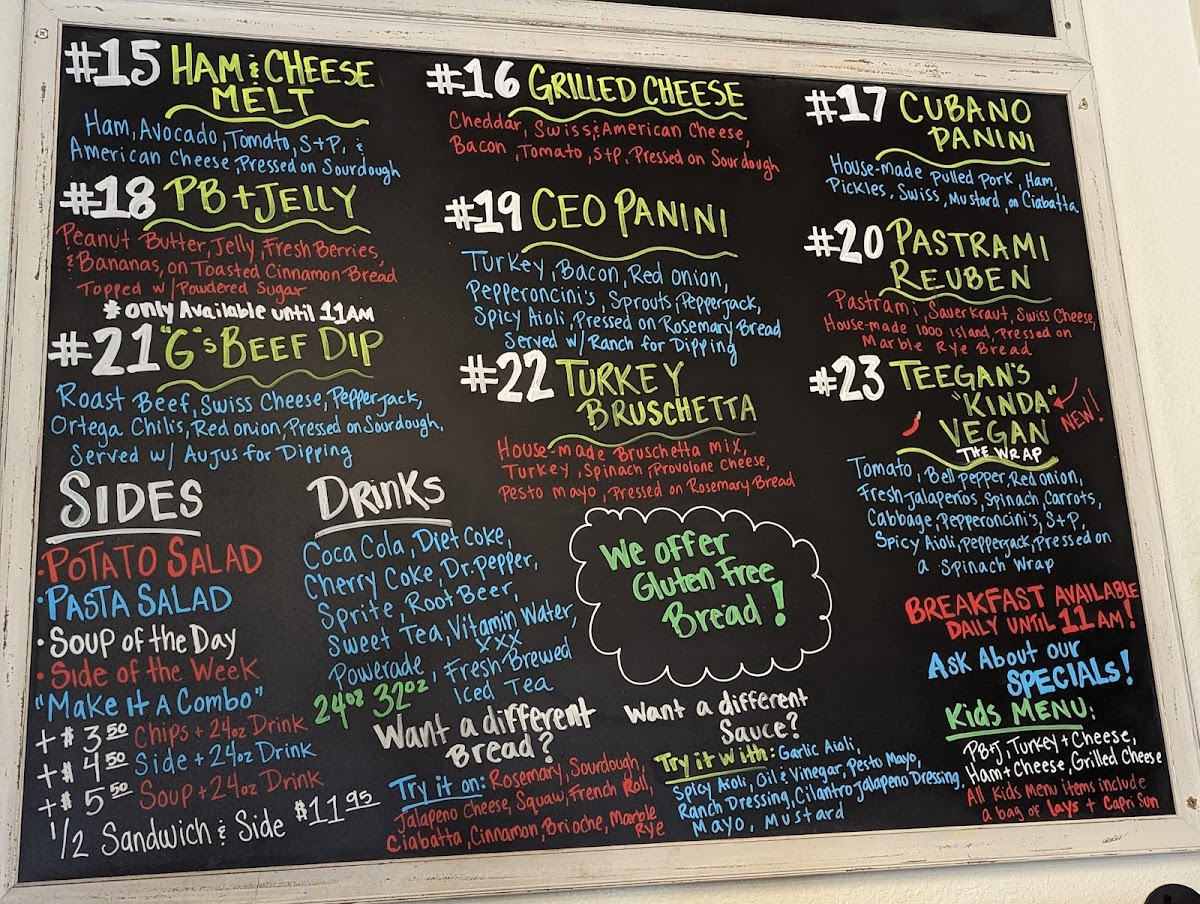 #15 HAM & CHEESE
MELT
Ham, Avocado, Tomato, S+P, &
American Cheese Pressed on Sourdough
#16 GRILLED CHEESE
Cheddar, Swiss & American Cheese,
Bacon, Tomato, S+P. Pressed on Sourdough
#17 CUBANO
PANINI
House-made pulled pork, Ham,
Pickles, Swiss, Mustard, on Ciabatta
#18 PB + JELLY
Peanut Butter, Jelly, Fresh Berries,
& Bananas, on Toasted Cinnamon Bread
Topped w/ Powdered Sugar
* only Available until 11AM
#19 CEO PANINI
Turkey, Bacon, Red onion,
Pepperoncini's, Sprouts, Pepperjack,
Spicy Aioli, Pressed on Rosemary Bread
Served w/ Ranch for Dipping
#20 PASTRAMI
REUBEN
Pastrami, Sauerkraut, Swiss Cheese,
House-made 1000 Island, Pressed on
Marble Rye Bread
#21 "G"s BEEF DIP
Roast Beef, Swiss Cheese, Pepperjack,
Ortega Chilis, Red onion, Pressed on Sourdough.
Served w/ Aujus for Dipping
#22 TURKEY
BRUSCHETTA
House-made Bruschetta Mix,
Turkey, Spinach, Provolone Cheese,
Pesto Mayo, Pressed on Rosemary Bread
#23 TEEGAN'S
"KINDA"
NEW!
VEGAN
THE WRAP
Tomato, Bell pepper, Red onion,
Fresh Jalapeños, Spinach, Carrots,
Cabbage, Pepperoncini's, S+P,
Spicy Aioli, Pepperjack, Pressed on
a Spinach Wrap
SIDES
• POTATO SALAD
• PASTA SALAD
• Soup of the Day
• Side of the Week
"Make It A Combo"
+ $3.50 Chips + 24oz Drink
+ $4.50 Side + 24oz Drink
+ $5.50 Soup + 24oz Drink
1/2 Sandwich & Side $11.95
DRINKS
Coca Cola, Diet Coke,
Cherry Coke, Dr. Pepper,
Sprite, Root Beer,
Sweet Tea, Vitamin Water,
XXX
Powerade, Fresh Brewed
Iced Tea
24oz 32oz
We offer
Gluten Free
Bread!
Want a different
Bread?
Try it on: Rosemary, Sourdough,
Jalapeno Cheese, Squaw, French Roll,
Ciabatta, Cinnamon, Brioche, Marble
Rye
Want a different
Sauce?
Try it with: Garlic Aioli,
Spicy Aioli, Oil & Vinegar, Pesto Mayo,
Ranch Dressing, Cilantro Jalapeno Dressing,
Mayo, Mustard
BREAKFAST AVAILABLE
DAILY UNTIL 11 AM!
Ask About our
SPECIALS!
Kids MENU:
PB+J, Turkey + Cheese,
Ham + Cheese, Grilled Cheese
All Kids Menu Items include
a bag of Lays + Capri Sun